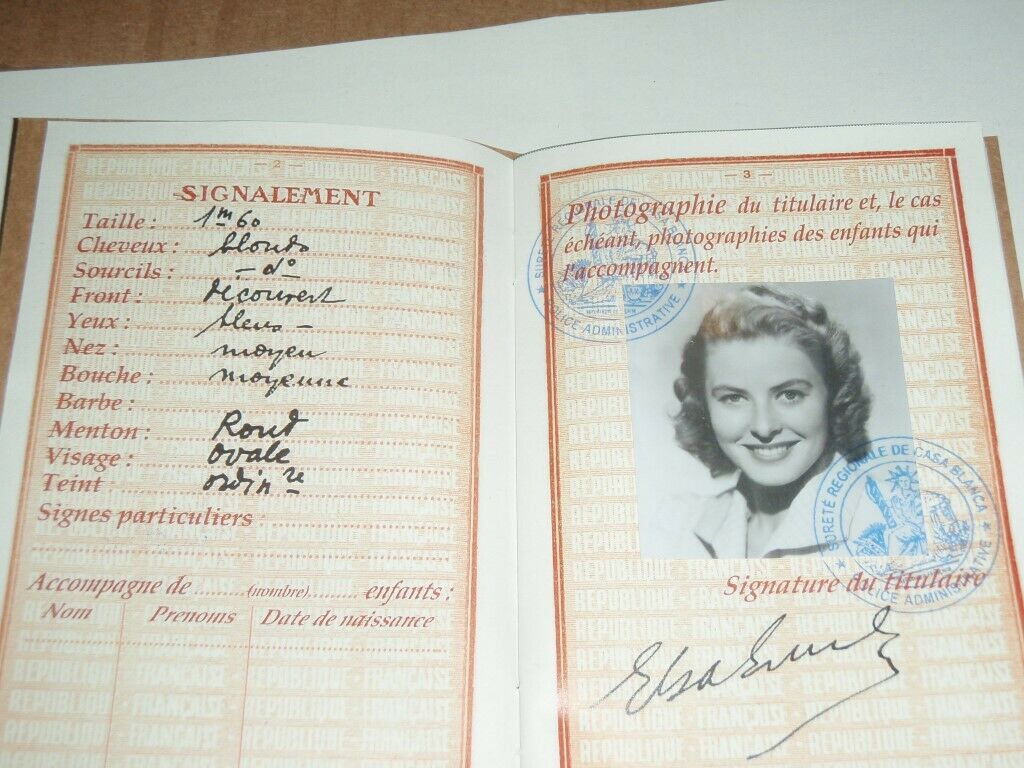 — 2 —
SIGNALEMENT
Taille : 1m60
Cheveux : blonds
Sourcils : — do
Front : découvert
Yeux : bleus —
Nez : moyen
Bouche : moyenne
Barbe :
Menton : Rond
Visage : ovale
Teint ordinre
Signes particuliers :
Accompagne de .......... (nombre) .......... enfants :
Nom Prenoms Date de naissance
— 3 —
Photographie du titulaire et, le cas
échéant, photographies des enfants qui
l'accompagnent.
SURETÉ REGIONALE DE CASA BLANCA
POLICE ADMINISTRATIVE
SURETÉ REGIONALE DE CASA BLANCA
POLICE ADMINISTRATIVE
Signature du titulaire
REPUBLIQUE - FRANÇAISE